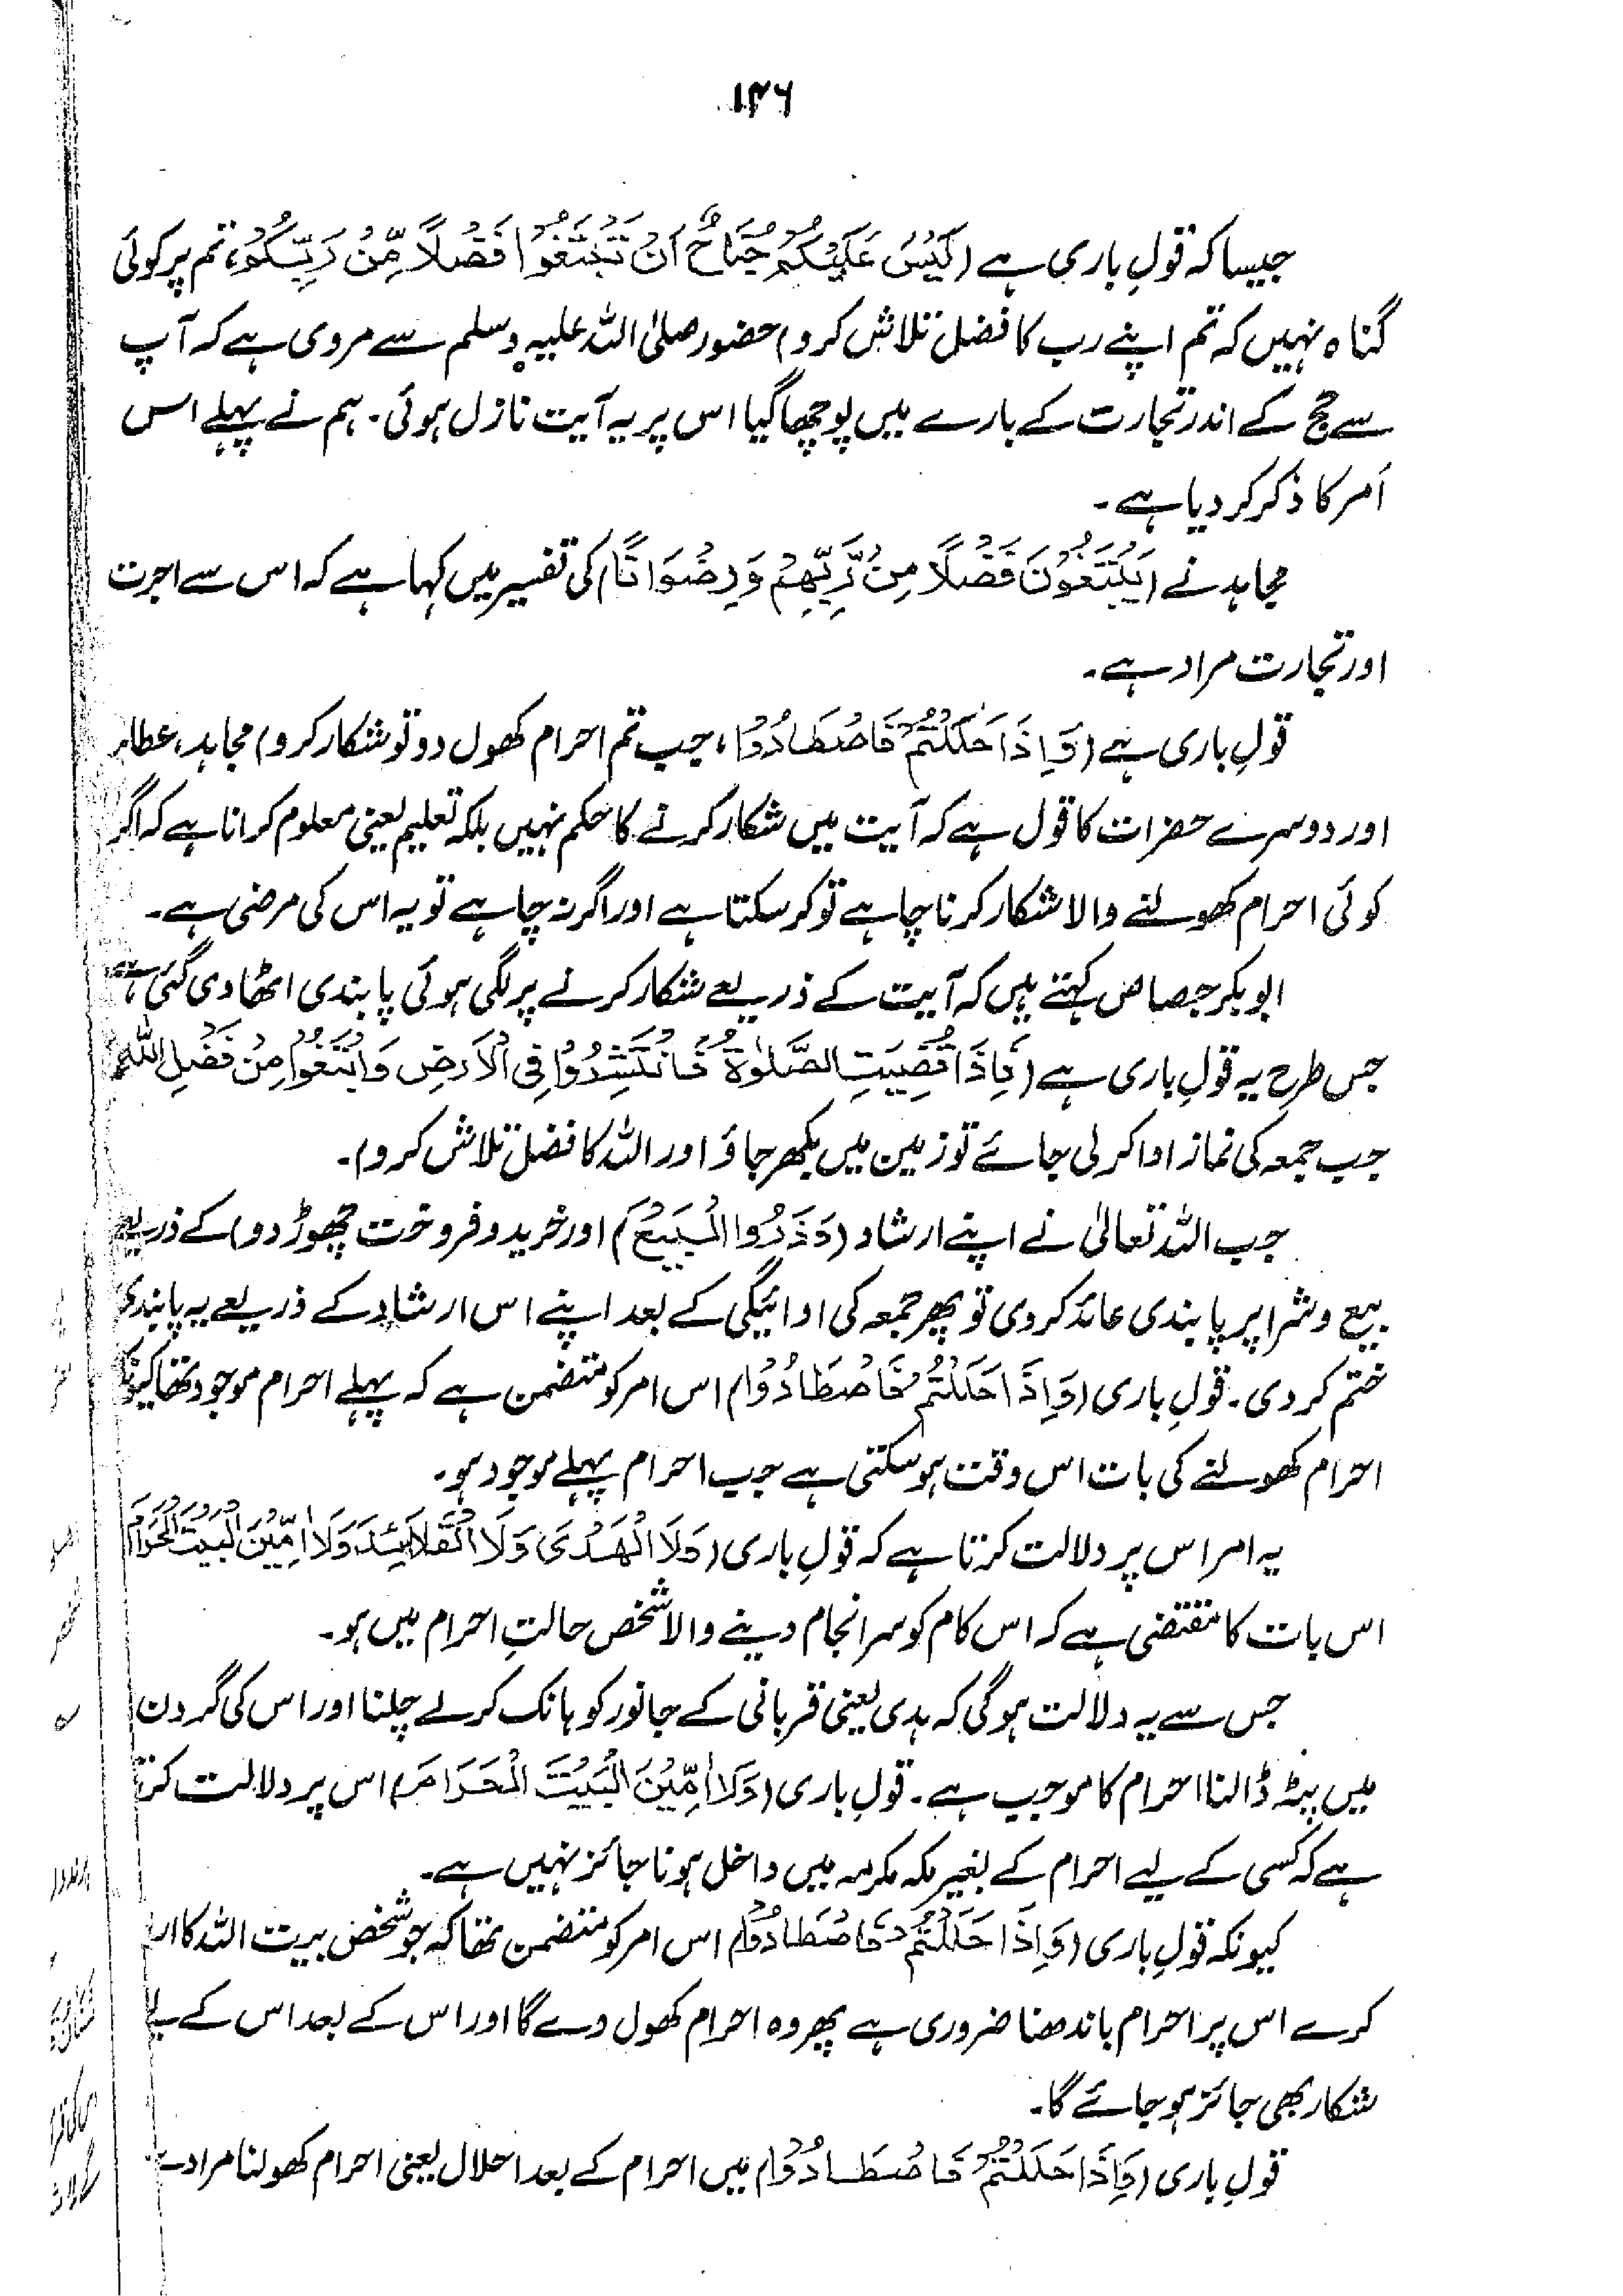 ۱۴۶
جیسا کہ قولِ باری ہے (لَیْسَ عَلَیْکُمْ جُنَاحٌ اَنْ تَبْتَغُوْا فَضْلاً مِّنْ رَبِّکُمْ، تم پر کوئی
گناہ نہیں کہ تم اپنے رب کا فضل تلاش کرو) حضور صلی اللہ علیہ وسلم سے مروی ہے کہ آپ
سے حج کے اندر تجارت کے بارے میں پوچھا گیا اس پر یہ آیت نازل ہوئی۔ ہم نے پہلے اس
اَمر کا ذکر کر دیا ہے۔
مجاہد نے (یَبْتَغُوْنَ فَضْلًا مِنْ رَّبِّهِمْ وَرِضْوَانًا) کی تفسیر میں کہا ہے کہ اس سے اجرت
اور تجارت مراد ہے۔
قولِ باری ہے (وَاِذَا حَلَلْتُمْ فَاصْطَادُوْا، جب تم احرام کھول دو تو شکار کرو) مجاہد، عطاء
اور دوسرے حضرات کا قول ہے کہ آیت میں شکار کرنے کا حکم نہیں بلکہ تعلیم یعنی معلوم کرانا ہے کہ اگر
کوئی احرام کھولنے والا شکار کرنا چاہے تو کر سکتا ہے اور اگر نہ چاہے تو یہ اس کی مرضی ہے۔
ابوبکر جصاص کہتے ہیں کہ آیت کے ذریعے شکار کرنے پر لگی ہوئی پابندی اٹھا دی گئی ہے
جس طرح یہ قولِ باری ہے (فَاِذَا قُضِیَتِ الصَّلٰوةُ فَانْتَشِرُوْا فِی الْاَرْضِ وَابْتَغُوْا مِنْ فَضْلِ اللّٰہِ
جب جمعہ کی نماز ادا کر لی جائے تو زمین میں بکھر جاؤ اور اللہ کا فضل تلاش کرو)۔
جب اللہ تعالیٰ نے اپنے ارشاد (وَذَرُوا الْبَیْعَ) اور خرید و فروخت چھوڑ دو) کے ذریعے
بیع و شرا پر پابندی عائد کر دی تو پھر جمعہ کی ادائیگی کے بعد اپنے اس ارشاد کے ذریعے یہ پابندی
ختم کر دی۔ قولِ باری (وَاِذَا حَلَلْتُمْ فَاصْطَادُوْا) اس امر کو متضمن ہے کہ پہلے احرام موجود تھا کیونکہ
احرام کھولنے کی بات اس وقت ہو سکتی ہے جب احرام پہلے موجود ہو۔
یہ امر اس پر دلالت کرتا ہے کہ قولِ باری (وَلَا الْهَدْیَ وَلَا الْقَلَائِدَ وَلَا اٰمِّیْنَ الْبَیْتَ الْحَرَامَ)
اس بات کا مقتضی ہے کہ اس کام کو سرانجام دینے والا شخص حالتِ احرام میں ہو۔
جس سے یہ دلالت ہوگی کہ ہدی یعنی قربانی کے جانور کو ہانک کر لے چلنا اور اس کی گردن
میں پٹہ ڈالنا احرام کا موجب ہے۔ قولِ باری (وَلَا اٰمِّیْنَ الْبَیْتَ الْحَرَامَ) اس پر دلالت کرتا
ہے کہ کسی کے لیے احرام کے بغیر مکہ مکرمہ میں داخل ہونا جائز نہیں ہے۔
کیونکہ قولِ باری (وَاِذَا حَلَلْتُمْ فَاصْطَادُوْا) اس امر کو متضمن تھا کہ جو شخص بیت اللہ کا ار
کرے اس پر احرام باندھنا ضروری ہے پھر وہ احرام کھول دے گا اور اس کے بعد اس کے لیے
شکار بھی جائز ہو جائے گا۔
قولِ باری (وَاِذَا حَلَلْتُمْ فَاصْطَادُوْا) میں احرام کے بعد احلال یعنی احرام کھولنا مراد ہے